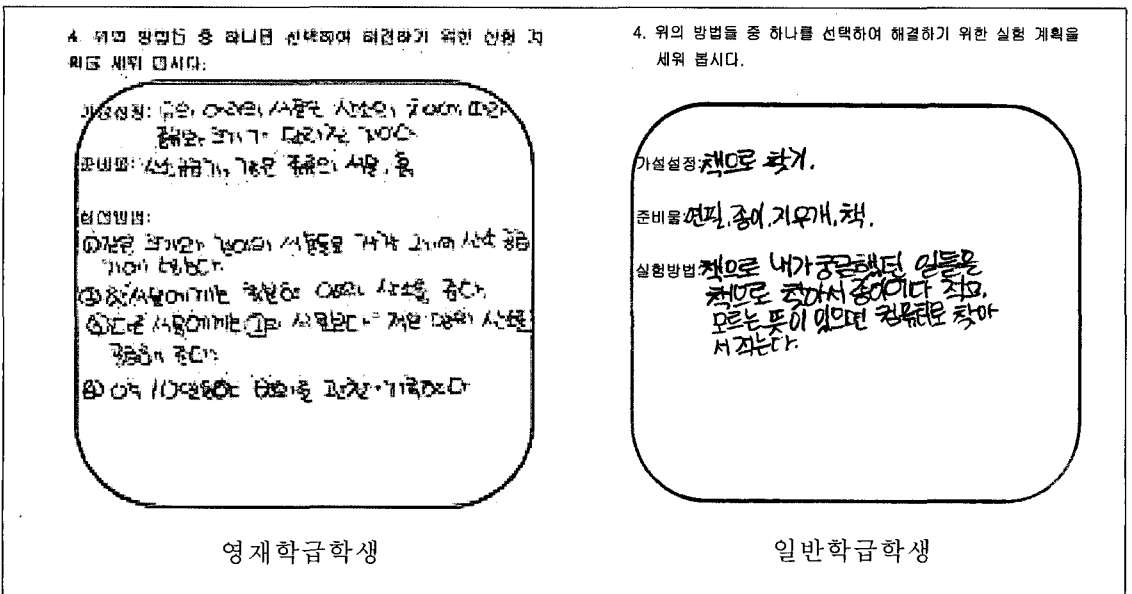 4. 위의 방법들 중 하나를 선택하여 해결하기 위한 실험 계
획을 세워 봅시다.
가설설정: 산소의 따라
크기가 달라질 것이다
준비물: 산소공급기, 같은 종류의 식물, 흙
실험방법:
① 같은 크기와 식물들을 각각 산소 공급
② 한 식물에게는 산소를 준다
③ 다른 식물에게는 ①의 식물보다 적은 양의 산소를
공급해 준다
④ 약 10일동안 관찰·기록한다
영재학급학생
4. 위의 방법들 중 하나를 선택하여 해결하기 위한 실험 계획을
세워 봅시다.
가설설정: 책으로 찾기.
준비물: 연필, 종이, 지우개, 책.
실험방법: 책으로 내가 궁금했던 일들을
책으로 찾아서 종이에다 적고,
모르는 뜻이 있으면 컴퓨터로 찾아
서 적는다.
일반학급학생